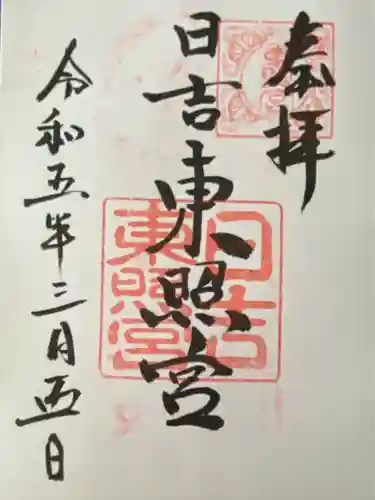 奉拝
日吉東照宮
令和五年三月五日
日吉
東照宮